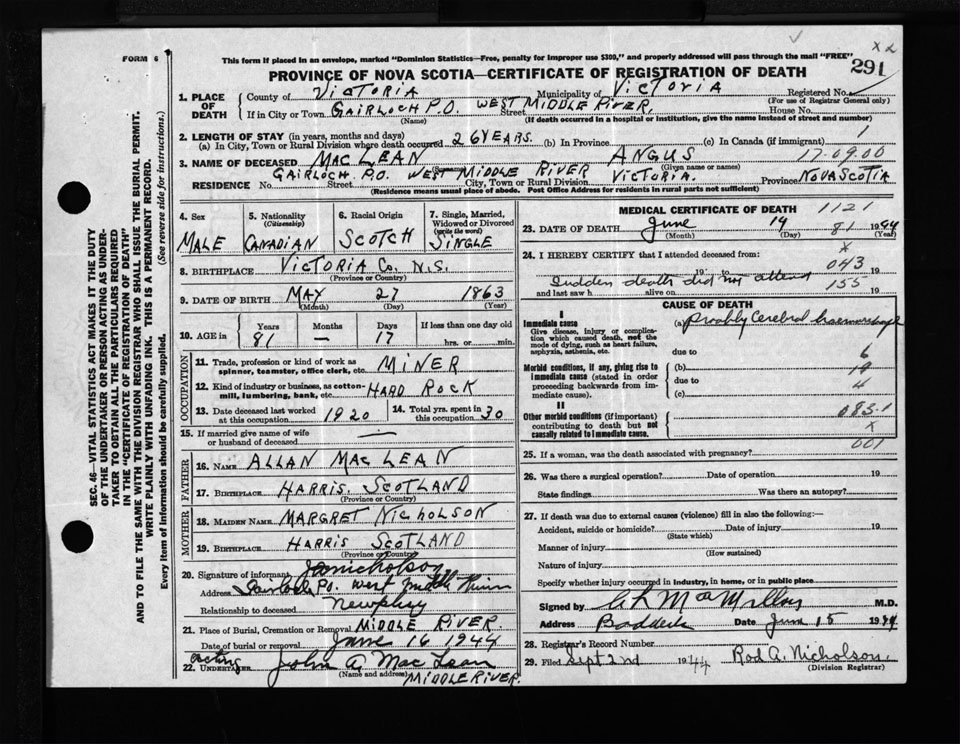 FORM 6
This form if placed in an envelope, marked "Dominion Statistics—Free, penalty for improper use $300," and properly addressed will pass through the mail "FREE"
X 2
291
PROVINCE OF NOVA SCOTIA—CERTIFICATE OF REGISTRATION OF DEATH
1. PLACE OF DEATH
County of VICTORIA Municipality of VICTORIA Registered No.
(For use of Registrar General only)
If in City or Town GAIRLOCH P.O. WEST MIDDLE RIVER. Street House No.
(Name) (If death occurred in a hospital or institution, give the name instead of street and number)
2. LENGTH OF STAY (in years, months and days)
(a) In City, Town or Rural Division where death occurred 26 YEARS. (b) In Province (c) In Canada (if immigrant) 1
3. NAME OF DECEASED MAC LEAN ANGUS 17.09.00
(Given name or names)
RESIDENCE No. GAIRLOCH P.O. Street WEST MIDDLE RIVER City, Town or Rural Division VICTORIA. Province NOVA SCOTIA
(Residence means usual place of abode. Post Office Address for residents in rural parts not sufficient)
4. Sex MALE
5. Nationality (Citizenship) CANADIAN
6. Racial Origin SCOTCH
7. Single, Married, Widowed or Divorced (write the word) SINGLE
8. BIRTHPLACE VICTORIA CO. N.S.
(Province or Country)
9. DATE OF BIRTH MAY 27 1863
(Month) (Day) (Year)
10. AGE in Years Months Days If less than one day old
81 — 17 hrs. or min.
OCCUPATION
11. Trade, profession or kind of work as spinner, teamster, office clerk, etc. MINER
12. Kind of industry or business, as cotton-mill, lumbering, bank, etc. HARD ROCK
13. Date deceased last worked at this occupation 1920
14. Total yrs. spent in this occupation 30
15. If married give name of wife or husband of deceased —
FATHER
16. NAME ALLAN MAC LEAN
17. BIRTHPLACE HARRIS. SCOTLAND
(Province or Country)
MOTHER
18. MAIDEN NAME MARGRET NICHOLSON
19. BIRTHPLACE HARRIS SCOTLAND
(Province or Country)
20. Signature of informant Nicholson
Address Gairloch P.O. West Middle River
Relationship to deceased Newphey
21. Place of Burial, Cremation or Removal MIDDLE RIVER.
Date of burial or removal June 16 1944
acting
22. UNDERTAKER John A. Mac Lean
(Name and address) MIDDLE RIVER.
MEDICAL CERTIFICATE OF DEATH 1121
23. DATE OF DEATH June 14 81 1944
(Month) (Day) (Year)
24. I HEREBY CERTIFY that I attended deceased from: X
19 to 043 19
Sudden death did not attend
and last saw h alive on 155 19
CAUSE OF DEATH
I
Immediate cause
Give disease, injury or complication which caused death, not the mode of dying, such as heart failure, asphyxia, asthenia, etc.
(a) Proably Cerebral haemorrhage
due to 6
Morbid conditions, if any, giving rise to immediate cause (stated in order proceeding backwards from immediate cause).
(b) 19
due to 4
(c)
II
Other morbid conditions (if important) contributing to death but not causally related to immediate cause.
083.1
X
25. If a woman, was the death associated with pregnancy? 001
26. Was there a surgical operation? Date of operation 19
State findings Was there an autopsy?
27. If death was due to external causes (violence) fill in also the following:—
Accident, suicide or homicide? Date of injury 19
(State which)
Manner of injury
(How sustained)
Nature of injury
Specify whether injury occurred in industry, in home, or in public place
Signed by C L MacMillan M.D.
Address Baddeck Date June 15 1944
28. Registrar's Record Number
29. Filed Sept 2nd 1944 Rod A. Nicholson
(Division Registrar)
SEC. 46—VITAL STATISTICS ACT MAKES IT THE DUTY
OF THE UNDERTAKER OR PERSON ACTING AS UNDER-
TAKER TO OBTAIN ALL THE PARTICULARS REQUIRED
IN THE "CERTIFICATE OF REGISTRATION OF DEATH"
AND TO FILE THE SAME WITH THE DIVISION REGISTRAR WHO SHALL ISSUE THE BURIAL PERMIT.
WRITE PLAINLY WITH UNFADING INK. THIS IS A PERMANENT RECORD.
Every item of information should be carefully supplied. (See reverse side for instructions.)